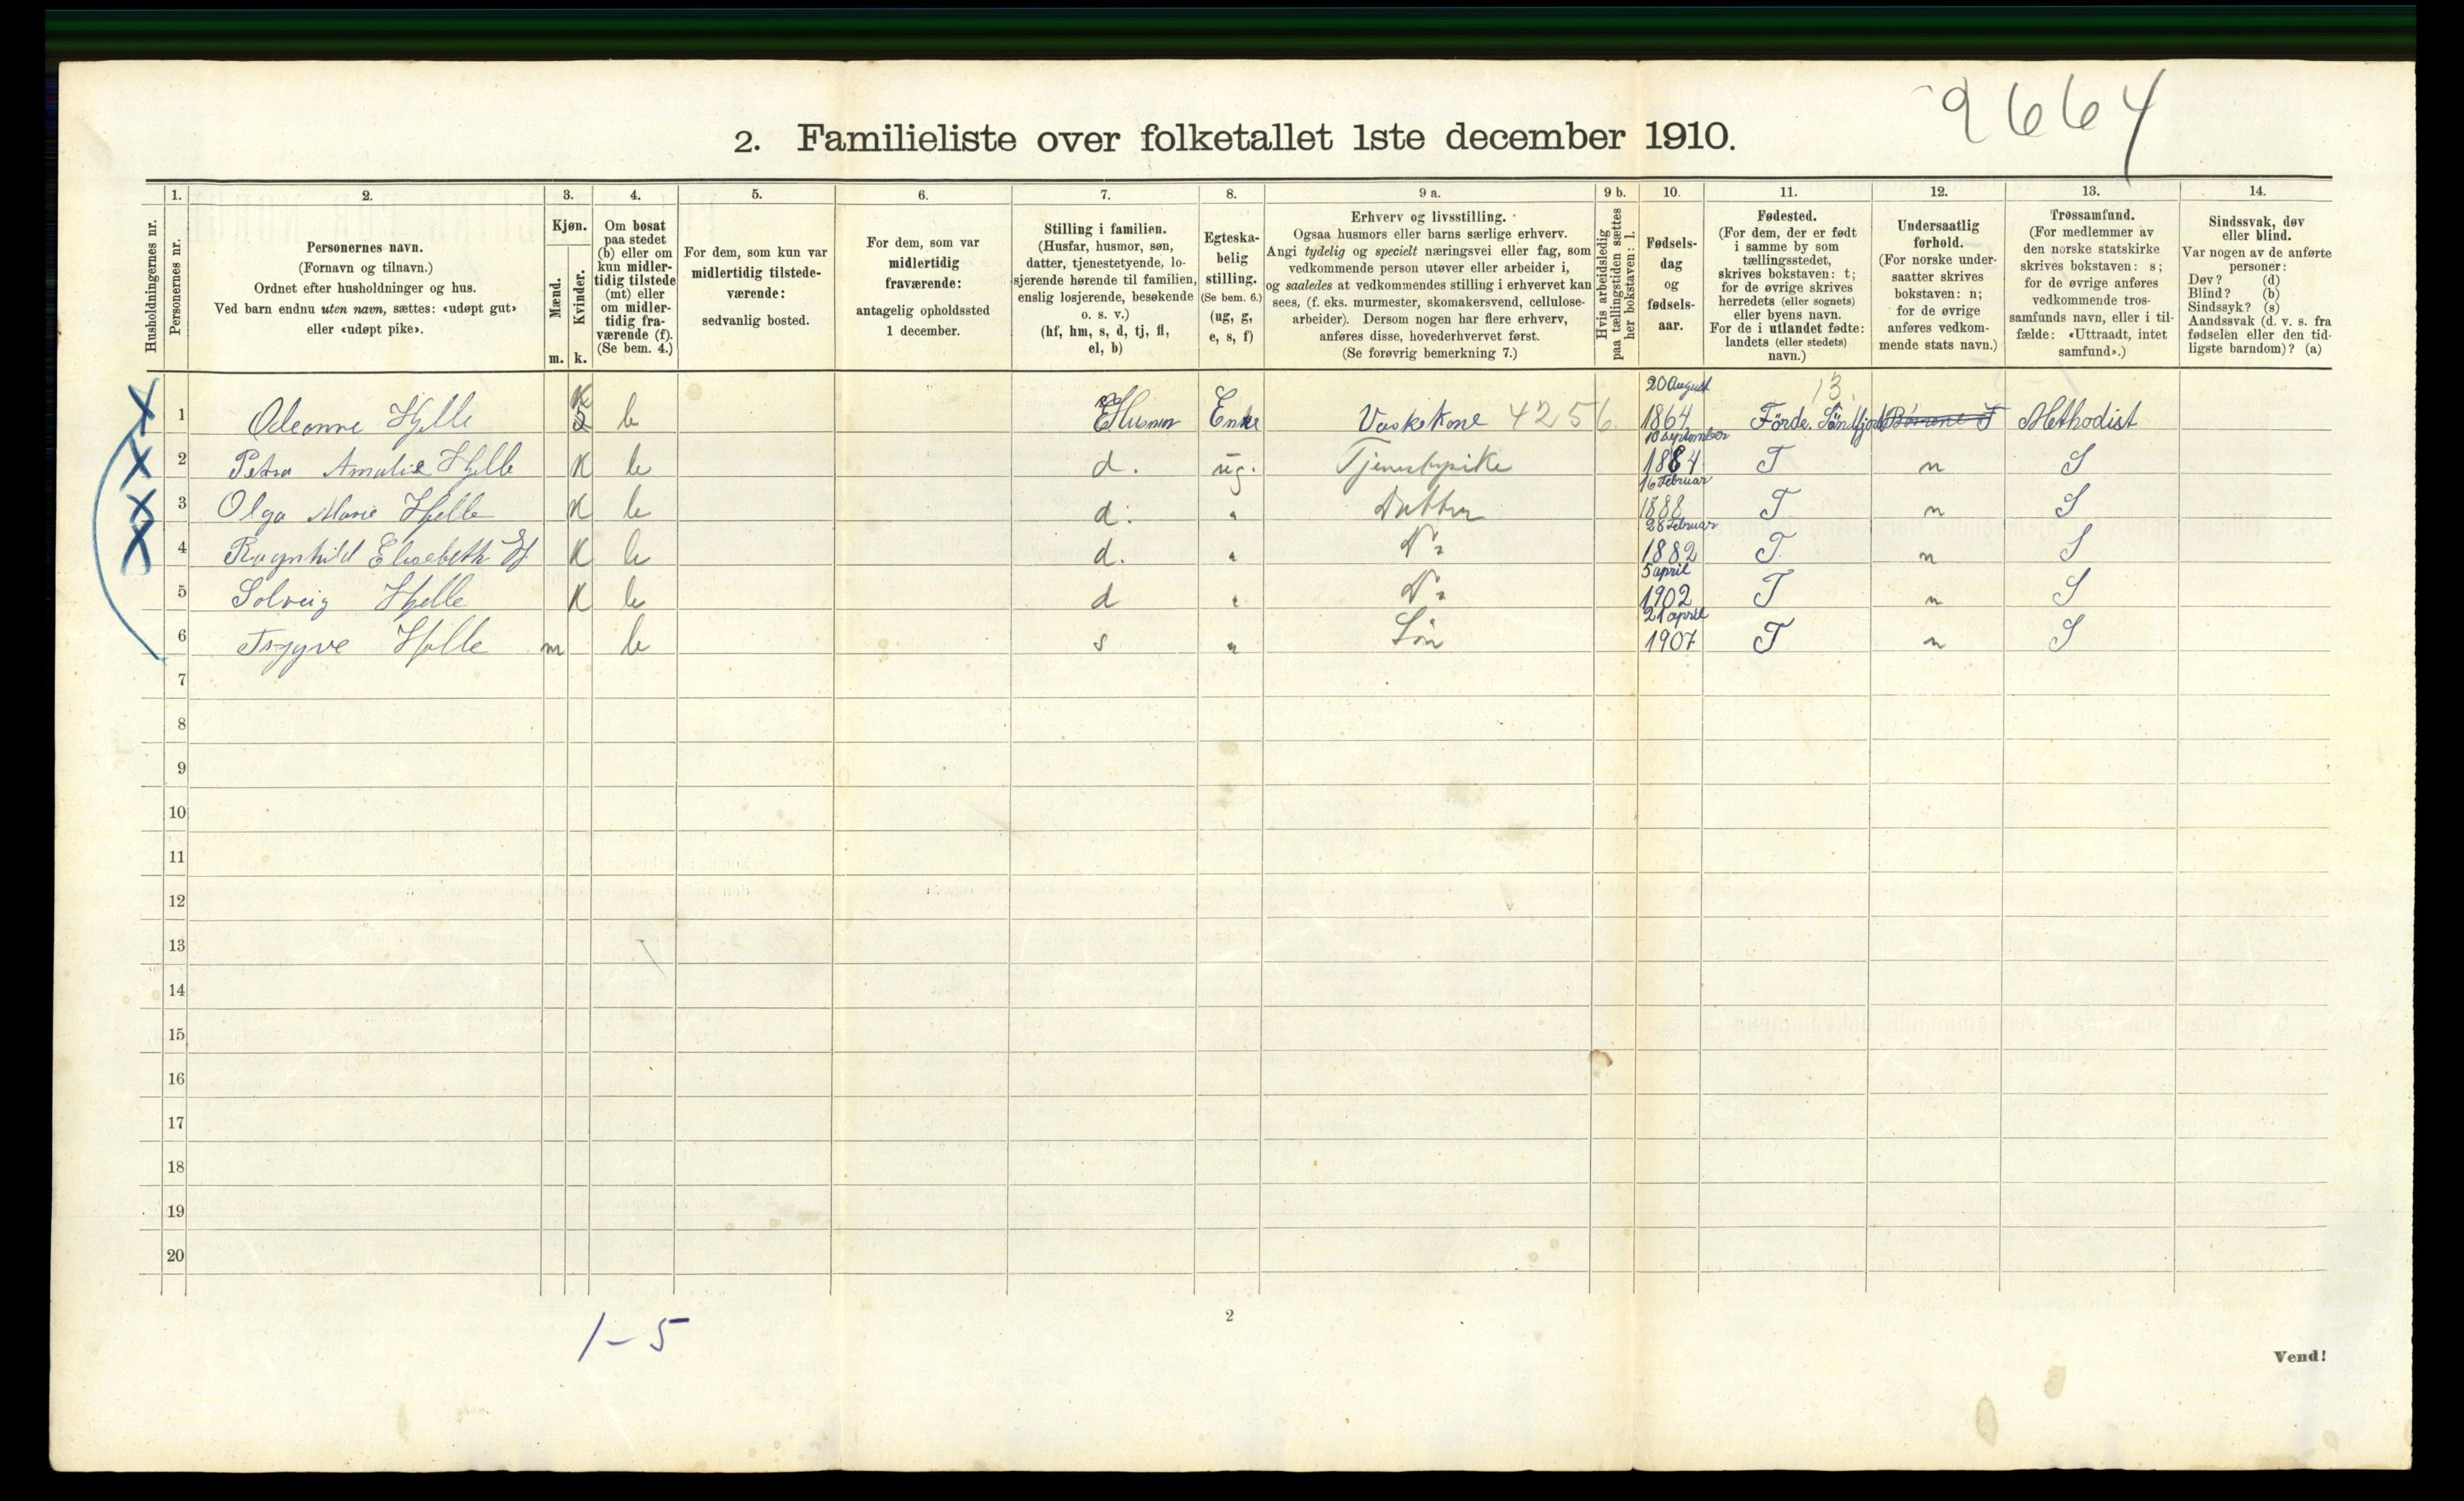 9664
2. Familieliste over folketallet 1ste december 1910.
Husholdningernes nr.
1.
Personernes nr.
2.
Personernes navn.
(Fornavn og tilnavn.)
Ordnet efter husholdninger og hus.
Ved barn endnu uten navn, sættes: «udøpt gut»
eller «udøpt pike».
3.
Kjøn.
Mænd.
Kvinder.
m. k.
4.
Om bosat
paa stedet
(b) eller om
kun midler-
tidig tilstede
(mt) eller
om midler-
tidig fra-
værende (f).
(Se bem. 4.)
5.
For dem, som kun var
midlertidig tilstede-
værende:
sedvanlig bosted.
6.
For dem, som var
midlertidig
fraværende:
antagelig opholdssted
1 december.
7.
Stilling i familien.
(Husfar, husmor, søn,
datter, tjenestetyende, lo-
sjerende hørende til familien,
enslig losjerende, besøkende
o. s. v.)
(hf, hm, s, d, tj, fl,
el, b)
8.
Egteska-
belig
stilling.
(Se bem. 6.)
(ug, g,
e, s, f)
9 a.
Erhverv og livsstilling.
Ogsaa husmors eller barns særlige erhverv.
Angi tydelig og specielt næringsvei eller fag, som
vedkommende person utøver eller arbeider i,
og saaledes at vedkommendes stilling i erhvervet kan
sees, (f. eks. murmester, skomakersvend, cellulose-
arbeider). Dersom nogen har flere erhverv,
anføres disse, hovederhvervet først.
(Se forøvrig bemerkning 7.)
9 b.
Hvis arbeidsledig
paa tællingstiden sættes
her bokstaven: l.
10.
Fødsels-
dag
og
fødsels-
aar.
11.
Fødested.
(For dem, der er født
i samme by som
tællingsstedet,
skrives bokstaven: t;
for de øvrige skrives
herredets (eller sognets)
eller byens navn.
For de i utlandet fødte:
landets (eller stedets)
navn.)
12.
Undersaatlig
forhold.
(For norske under-
saatter skrives
bokstaven: n;
for de øvrige
anføres vedkom-
mende stats navn.)
13.
Trossamfund.
(For medlemmer av
den norske statskirke
skrives bokstaven: s;
for de øvrige anføres
vedkommende tros-
samfunds navn, eller i til-
fælde: «Uttraadt, intet
samfund».)
14.
Sindssvak, døv
eller blind.
Var nogen av de anførte
personer:
Døv? (d)
Blind? (b)
Sindssyk? (s)
Aandssvak (d. v. s. fra
fødselen eller den tid-
ligste barndom)? (a)
X 1 Oleanne Hjelle K b Husmor Enke Vaskekone 4256 20 August 1864 13. Förde. Söndfjord Methodist
X 2 Petra Amalie Hjelle K b d. ug. Tjenestepike 10 September 1884 T n S
X 3 Olga Marie Hjelle K b d. " Datter 16 Februar 1888 T n S
X 4 Ragnhild Elisabeth Hj K b d. " 28 Februar 1882 T n S
5 Solveig Hjelle K b d " 5 april 1902 T n S
6 Trygve Hjelle m b s " Sön 21 april 1907 T n S
7
8
9
10
11
12
13
14
15
16
17
18
19
20
1-5
2
Vend!